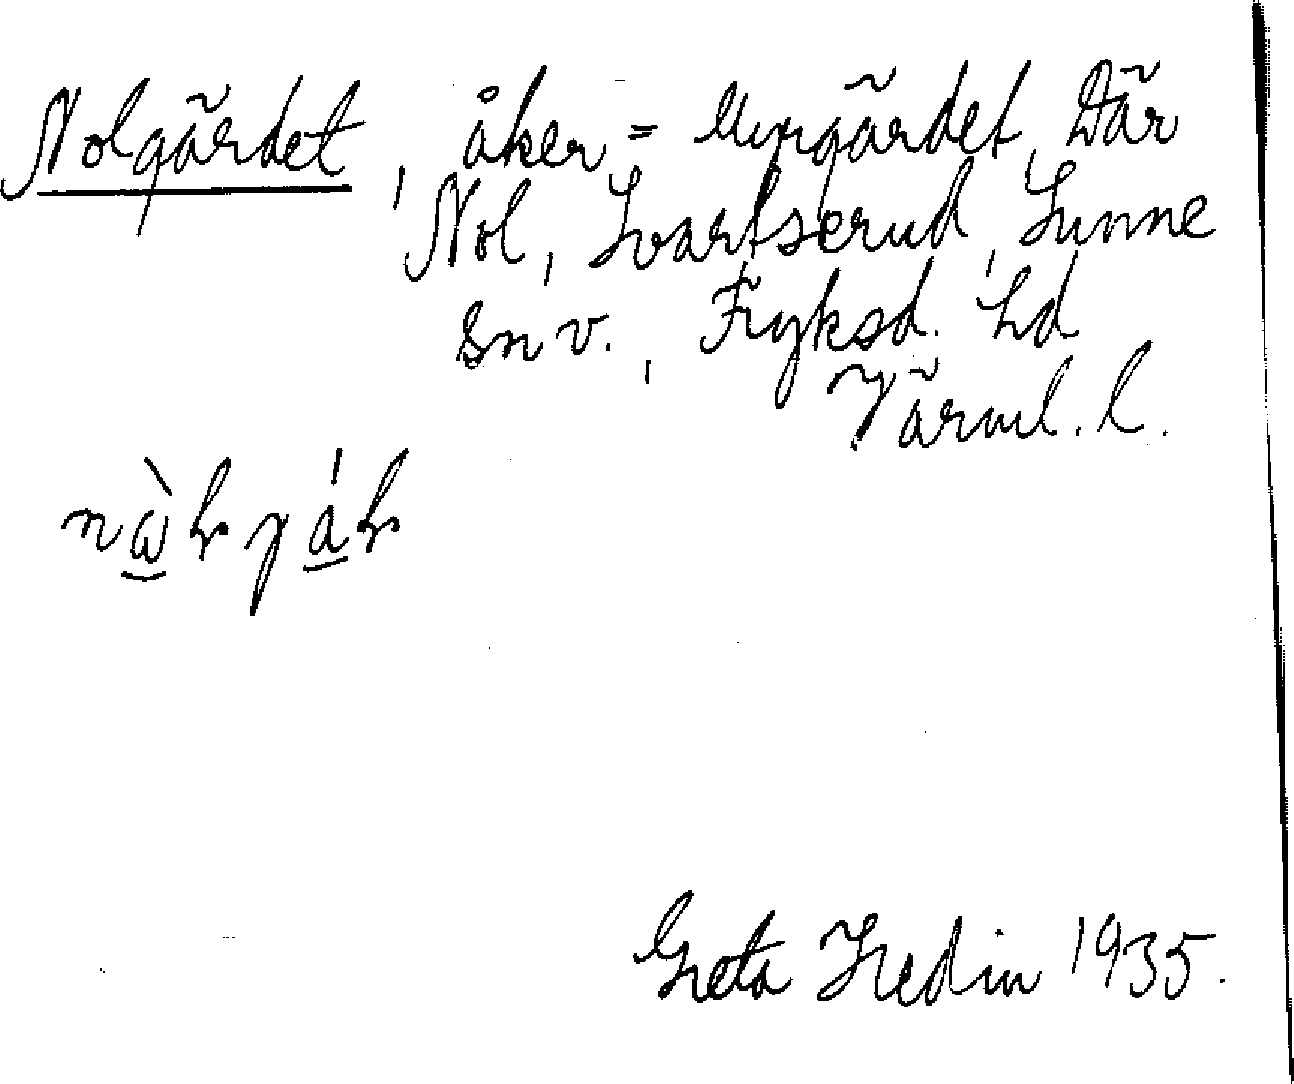 Nolgärdet, åker = Myrgärdet, Där
Nol, Svartserud, Sunne
sn v., Fryksd. hd
Värml. l.
Greta Hedin 1935.